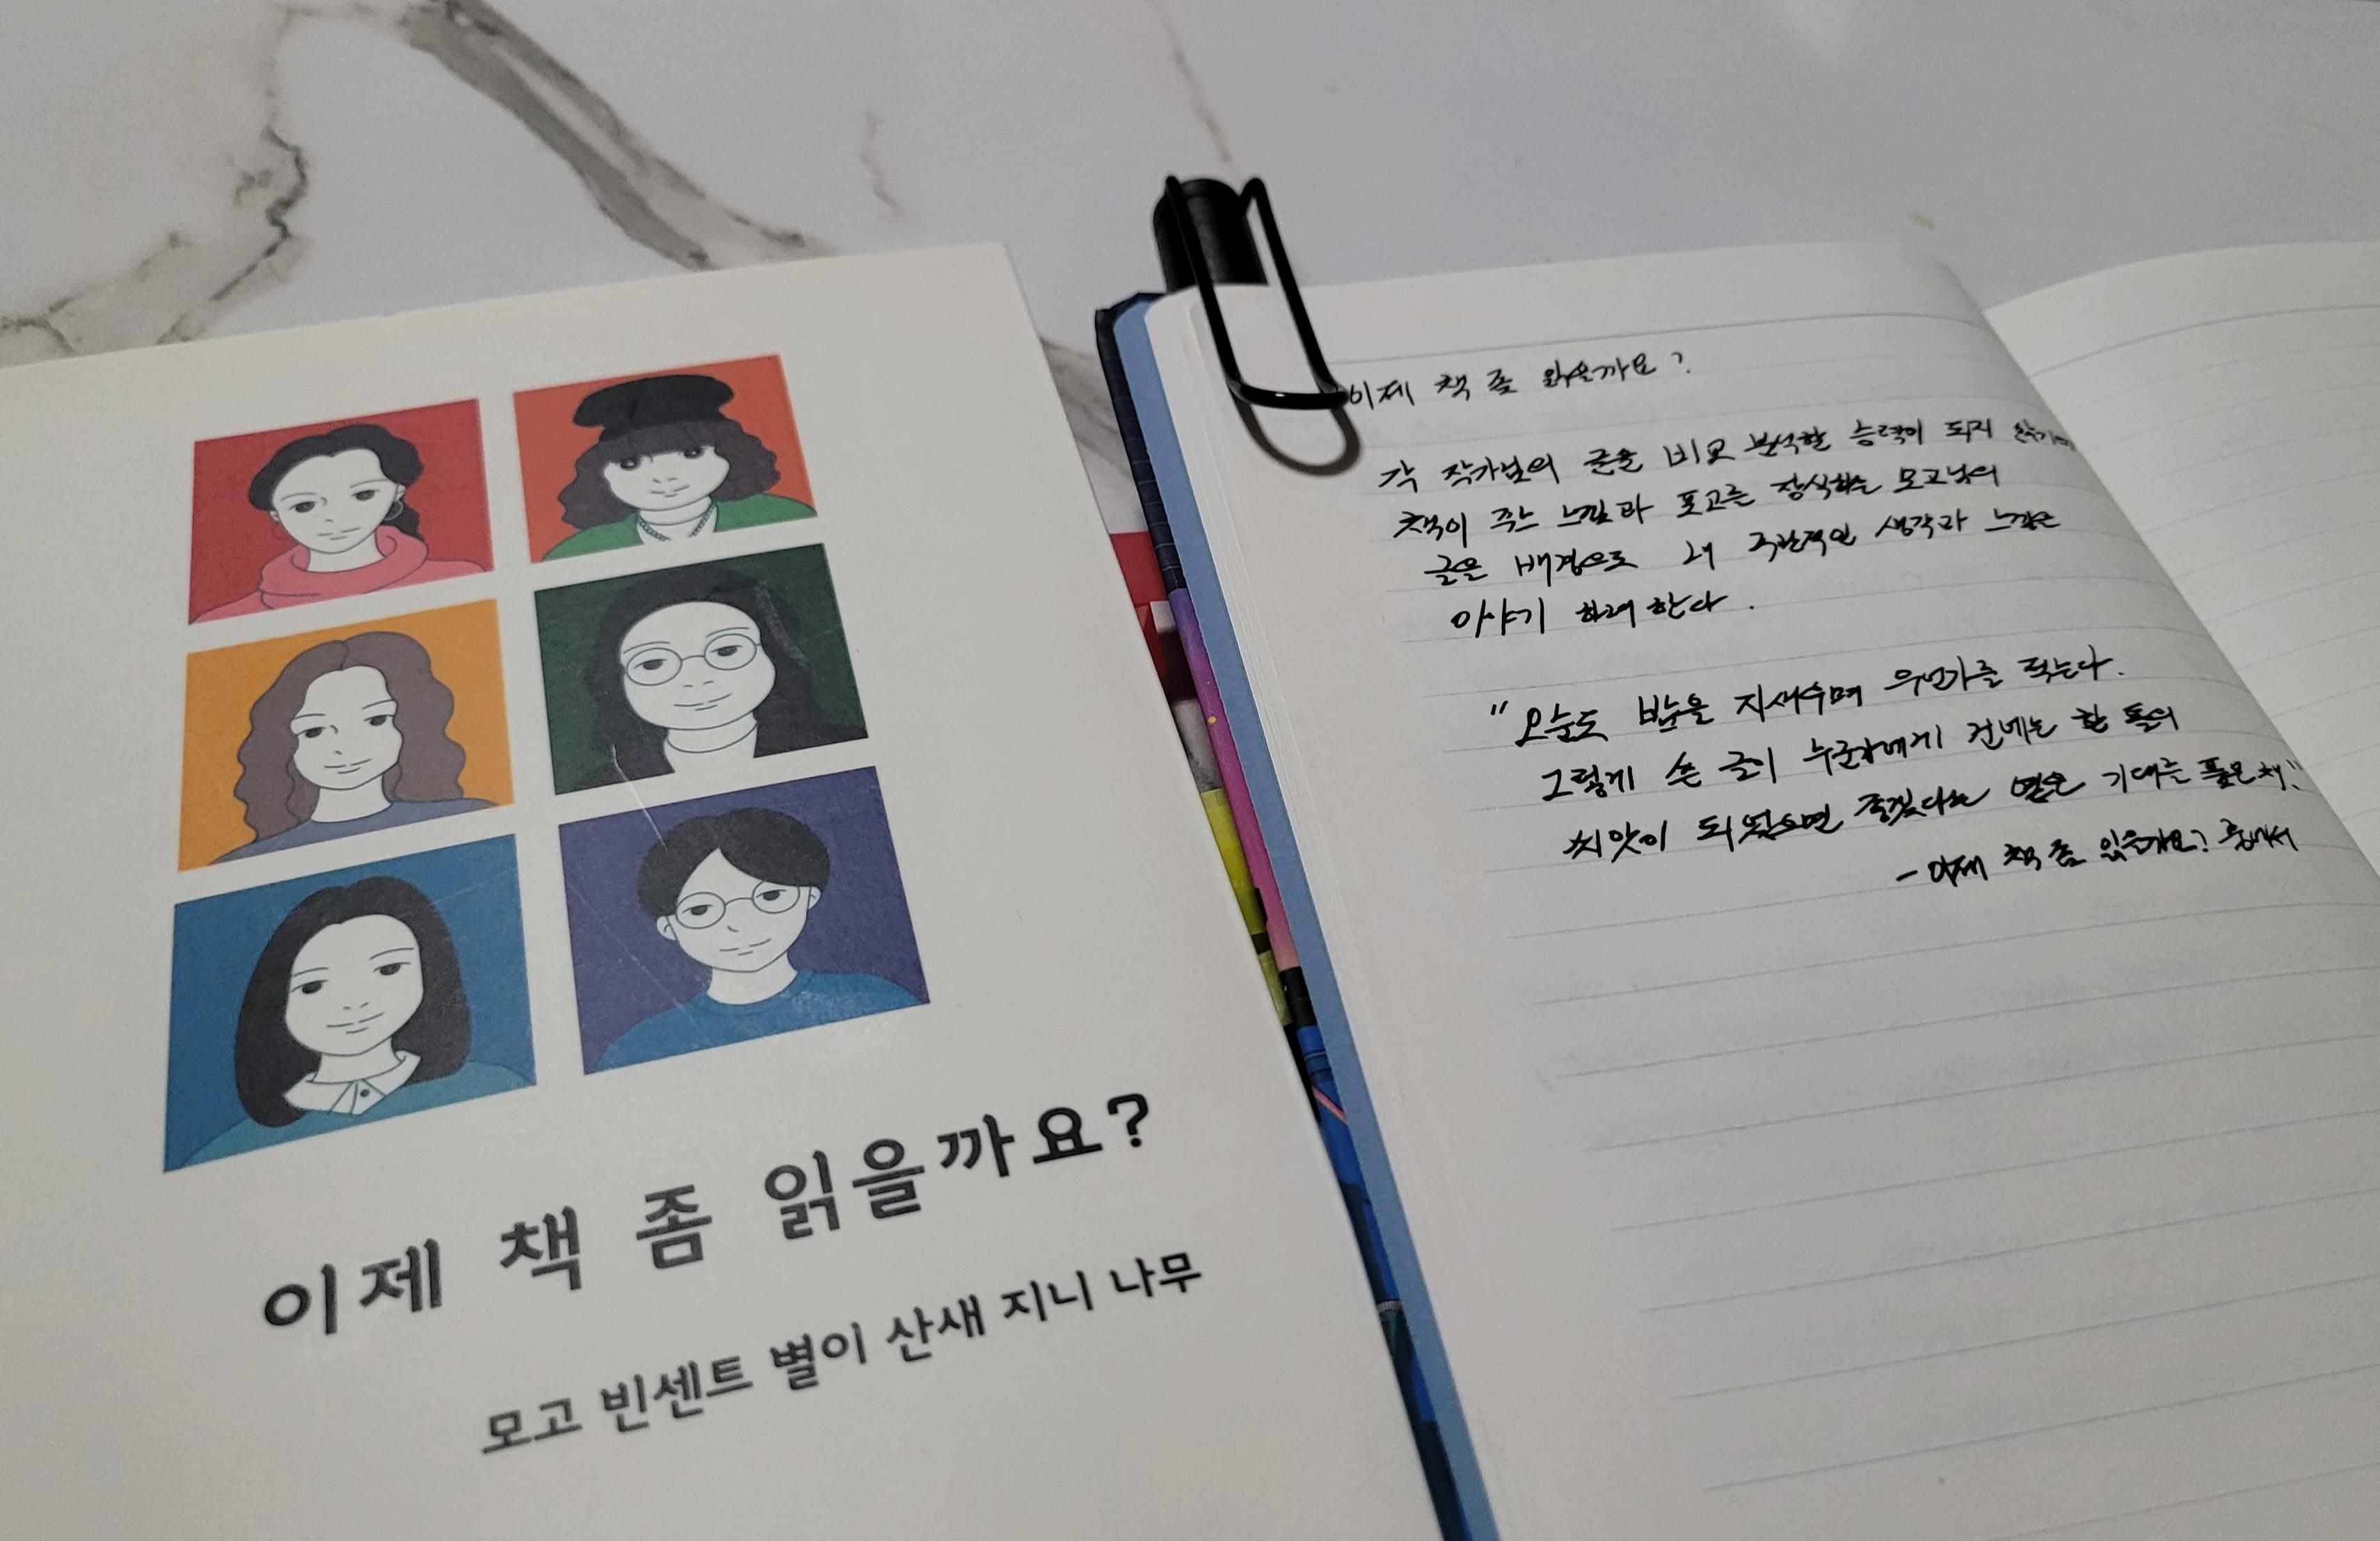 이제 책 좀 읽을까요?
모고 빈센트 별이 산새 지니 나무
이제 책 좀 읽을까요?
각 작가님의 글을 비교 분석할 능력이 되지
책이 주는 느낌과 포고를 장식하는 모고님의
글을 배경으로 내 주관적인 생각과 느낌을
이야기 하려 한다.
"오늘도 밤을 지새우며 무언가를 적는다.
그렇게 쓴 글이 누군가에게 건네는 한 톨의
씨앗이 되었으면 좋겠다는 옅은 기대를 품은 채."
- 이제 책 좀 읽을까요? 중에서